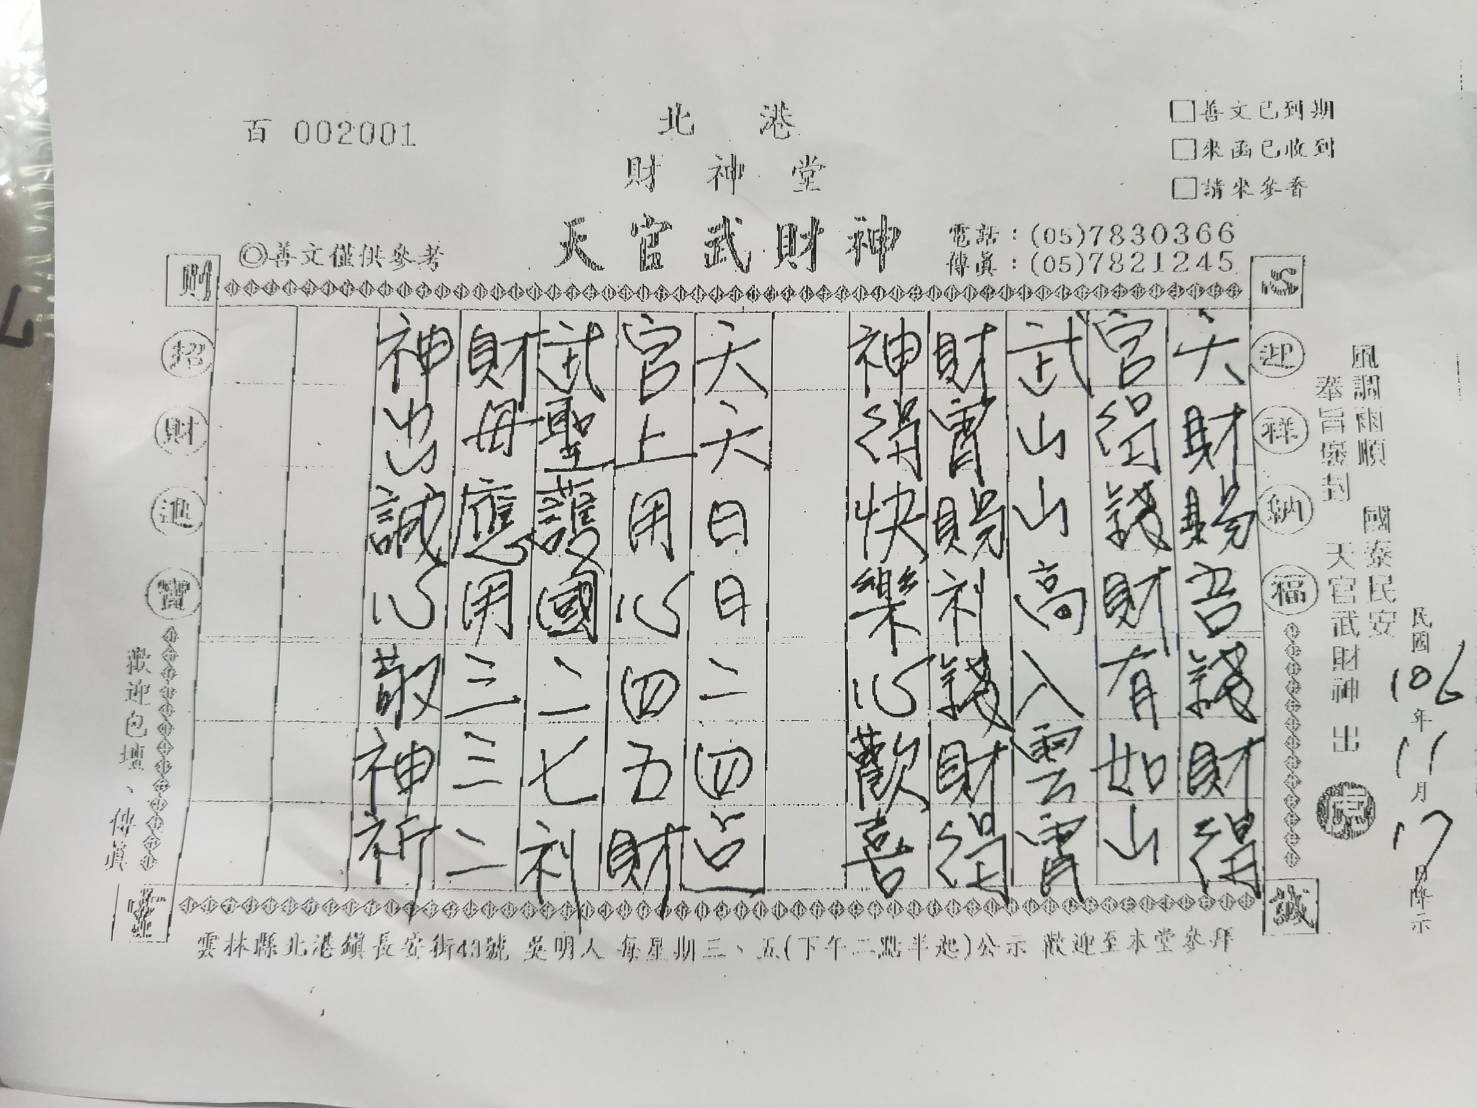 百 002001
北港
財神堂
天官武財神
◎善文僅供參考
□善文已到期
□來函已收到
□請來參香
電話：(05)7830366
傳真：(05)7821245
心
誠
迎祥納福
風調雨順 國泰民安
奉旨褒封 天官武財神 出
民國106年11月17日降示
天財賜吾錢財得
官得錢財有如山
武山山高入雲霄
財霄賜利錢財得
神得快樂心歡喜
天天日日二四占
官上用心四五財
武聖護國二七利
財毋應用三三二
神出誠心敬神祈
財
招財進寶
歡迎包壇、傳真
雲林縣北港鎮長安街43號 吳明人 每星期三、五(下午二點半起)公示 歡迎至本堂參拜